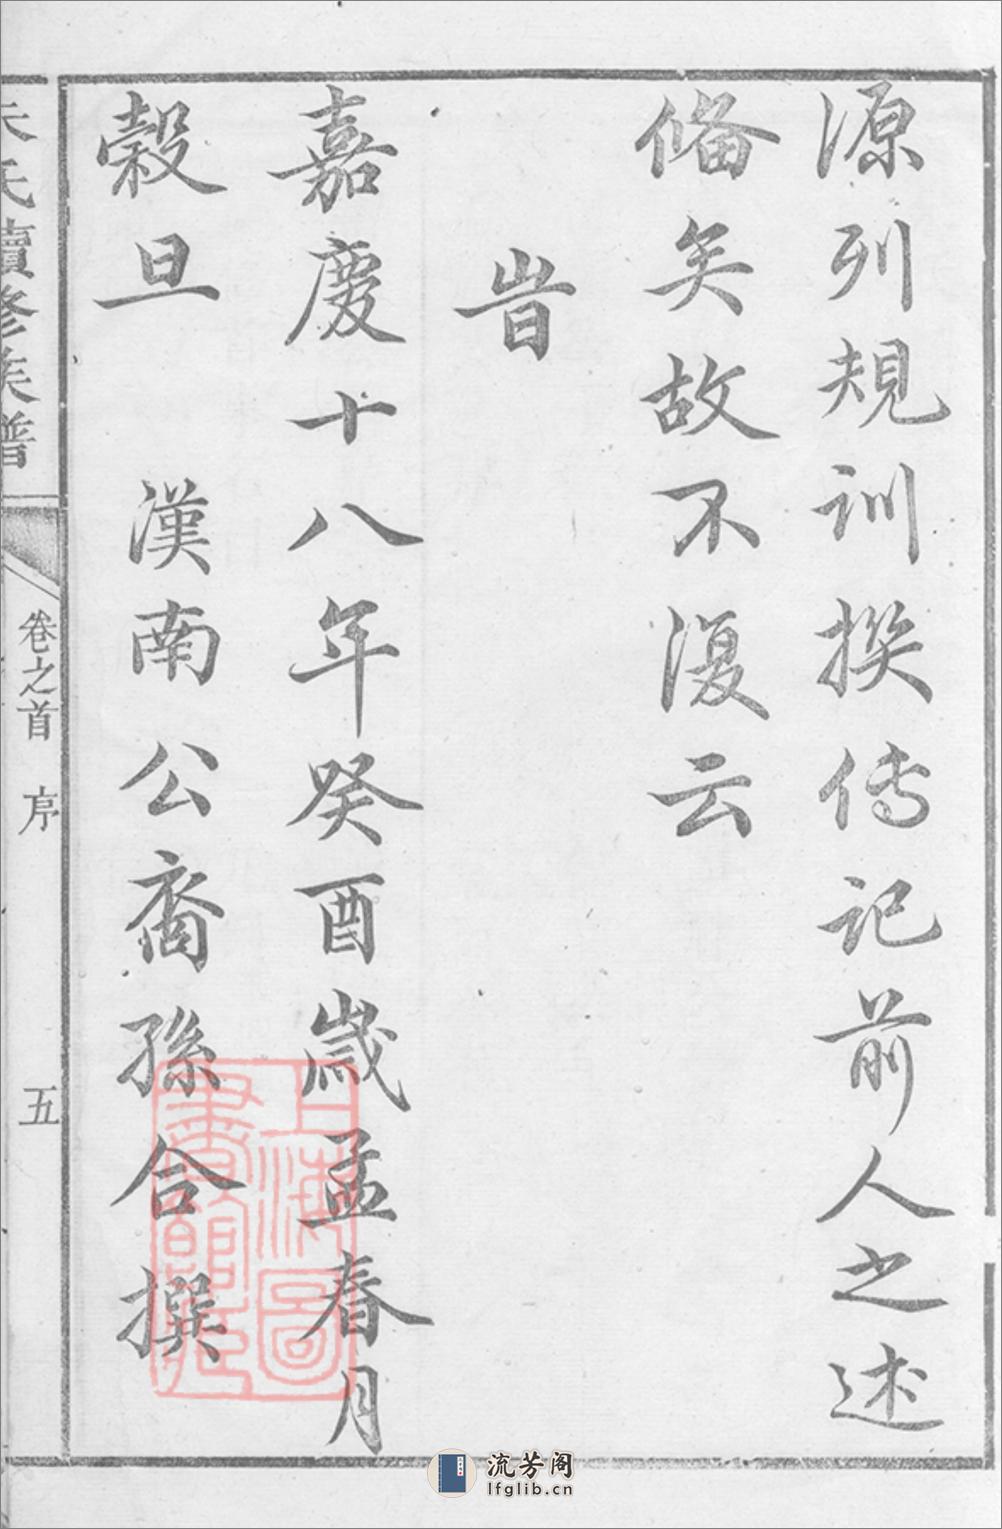 源列規訓撰傳記前人之述
偹矣故不復云
旹
嘉慶十八年癸酉歲孟春月
穀旦 漢南公裔孫合撰
氏續修族譜
卷之首 序
五
上海圖
書館藏
流芳阁
lfglib.cn